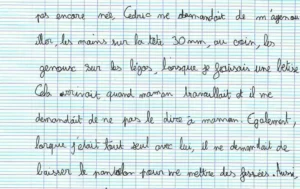 pas encore née, Cédric me demandait de m'agenou
iller, les mains sur la tête 30 mn, au coin, les
genoux sur les légos, lorsque je faisais une bêtise
Cela arrivait quand maman travaillait et il me
demandait de ne pas le dire à maman. Egalement,
lorsque j'étais tout seul avec lui, il me demandait de
baisser le pantalon pour me mettre des fessées. Aussi,